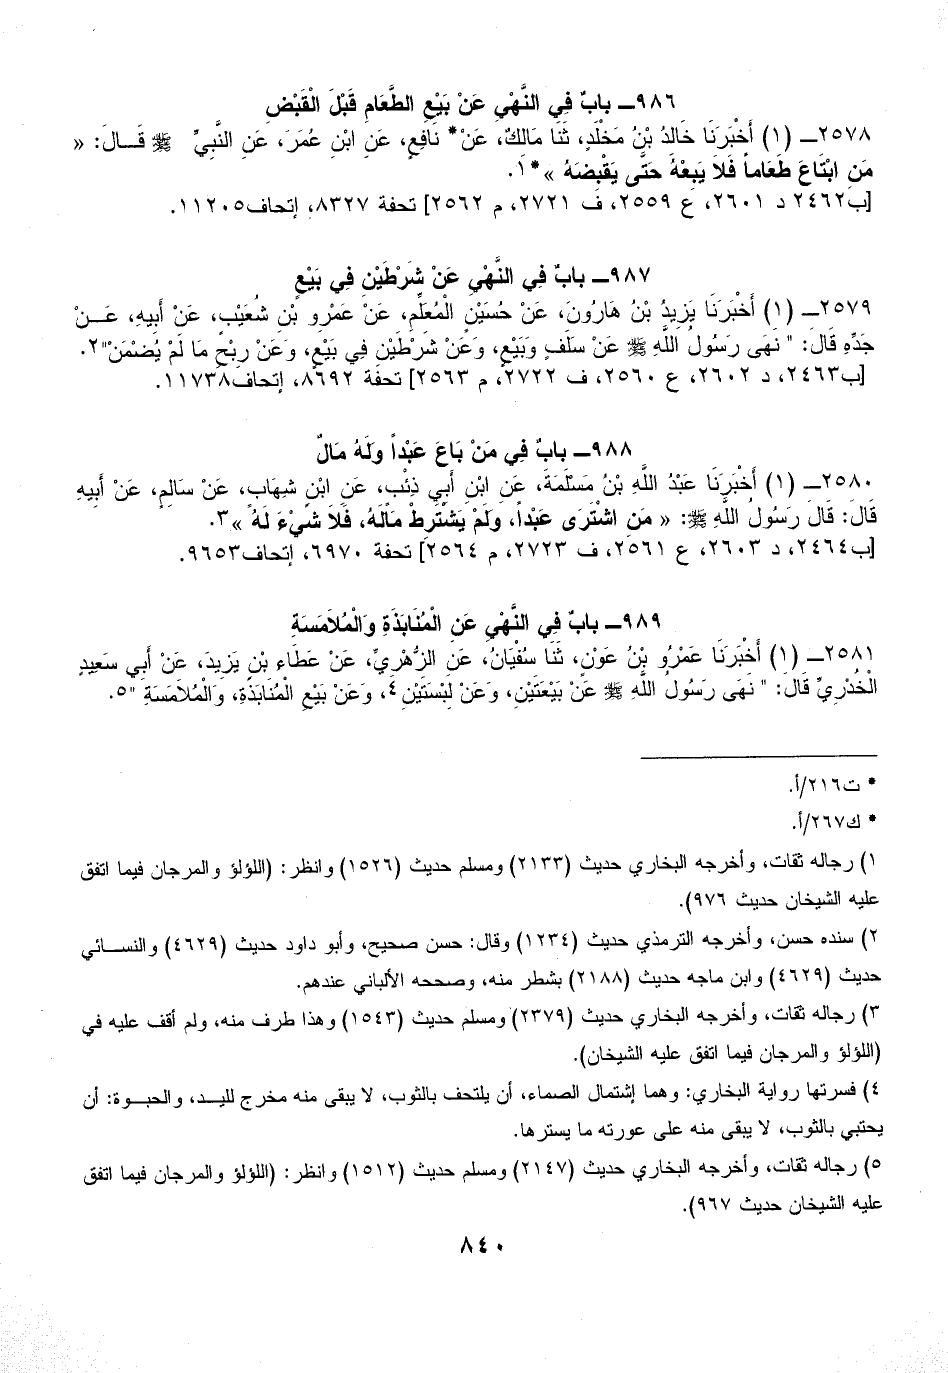 ٩٨٦ـ بابٌ فِي النَّهْيِ عَنْ بَيْعِ الطَّعَامِ قَبْلَ الْقَبْضِ
٢٥٧٨ـ (١) أَخْبَرَنَا خَالدُ بْنُ مَخْلَدٍ، ثَنَا مَالكٌ، عَنْ* نَافِعٍ، عَنِ ابْنِ عُمَرَ، عَنِ النَّبِيِّ ﷺ قَــالَ: «
مَنِ ابْتَاعَ طَعَاماً فَلاَ يَبِعْهُ حَتَّى يَقْبِضَهُ »*١.
[ب٢٤٦٢ د ٢٦٠١، ع ٢٥٥٩، ف ٢٧٢١، م ٢٥٦٢] تحفة ٨٣٢٧، إتحاف١١٢٠٥.
٩٨٧ـ بابٌ فِي النَّهْيِ عَنْ شَرْطَيْنِ فِي بَيْعٍ
٢٥٧٩ـ (١) أَخْبَرَنَا يَزِيدُ بْنُ هَارُونَ، عَنْ حُسَيْنٍ الْمُعَلِّمِ، عَنْ عَمْرِو بْنِ شُعَيْبٍ، عَنْ أَبيهِ، عَــنْ
جَدِّهِ قَالَ: " نَهَى رَسُولُ اللَّهِ ﷺ عَنْ سَلَفٍ وَبَيْعٍ، وَعَنْ شَرْطَيْنِ فِي بَيْعٍ، وَعَنْ رِبْحِ مَا لَمْ يُضْمَنْ"٢.
[ب٢٤٦٣، د ٢٦٠٢، ع ٢٥٦٠، ف ٢٧٢٢، م ٢٥٦٣] تحفة ٨٦٩٢، إتحاف١١٧٣٨.
٩٨٨ـ بابٌ فِي مَنْ بَاعَ عَبْداً وَلَهُ مَالٌ
٢٥٨٠ـ (١) أَخْبَرَنَا عَبْدُ اللَّهِ بْنُ مَسْلَمَةَ، عَنِ ابْنِ أَبِي ذِئْبٍ، عَنِ ابْنِ شِهَابٍ، عَنْ سَالِمٍ، عَنْ أَبيهِ
قَالَ: قَالَ رَسُولُ اللَّهِ ﷺ: « مَنِ اشْتَرَى عَبْداً، وَلَمْ يَشْتَرِطْ مَالَهُ، فَلاَ شَيْءَ لَهُ »٣.
[ب٢٤٦٤، د ٢٦٠٣، ع ٢٥٦١، ف ٢٧٢٣، م ٢٥٦٤] تحفة ٦٩٧٠، إتحاف٩٦٥٣.
٩٨٩ـ بابٌ فِي النَّهْيِ عَنِ الْمُنَابَذَةِ وَالْمُلاَمَسَةِ
٢٥٨١ـ (١) أَخْبَرَنَا عَمْرُو بْنُ عَوْنٍ، ثَنَا سُفْيَانُ، عَنِ الزُّهْرِيِّ، عَنْ عَطَاءِ بْنِ يَزِيدَ، عَنْ أَبِي سَعِيدٍ
الْخُدْرِيِّ قَالَ: " نَهَى رَسُولُ اللَّهِ ﷺ عَنْ بَيْعَتَيْنِ، وَعَنْ لِبْسَتَيْنِ ٤، وَعَنْ بَيْعِ الْمُنَابَذَةِ، وَالْمُلاَمَسَةِ "٥.
* ت٢١٦/أ.
* ك٢٦٧/أ.
١) رجاله ثقات، وأخرجه البخاري حديث (٢١٣٣) ومسلم حديث (١٥٢٦) وانظر: (اللؤلؤ والمرجان فيما اتفق
عليه الشيخان حديث ٩٧٦).
٢) سنده حسن، وأخرجه الترمذي حديث (١٢٣٤) وقال: حسن صحيح، وأبو داود حديث (٤٦٢٩) والنســائي
حديث (٤٦٢٩) وابن ماجه حديث (٢١٨٨) بشطر منه، وصححه الألباني عندهم.
٣) رجاله ثقات، وأخرجه البخاري حديث (٢٣٧٩) ومسلم حديث (١٥٤٣) وهذا طرف منه، ولم أقف عليه في
(اللؤلؤ والمرجان فيما اتفق عليه الشيخان).
٤) فسرتها رواية البخاري: وهما إشتمال الصماء، أن يلتحف بالثوب، لا يبقى منه مخرج لليــد، والحبــوة: أن
يحتبي بالثوب، لا يبقى منه على عورته ما يسترها.
٥) رجاله ثقات، وأخرجه البخاري حديث (٢١٤٧) ومسلم حديث (١٥١٢) وانظر: (اللؤلؤ والمرجان فيما اتفق
عليه الشيخان حديث ٩٦٧).
٨٤٠